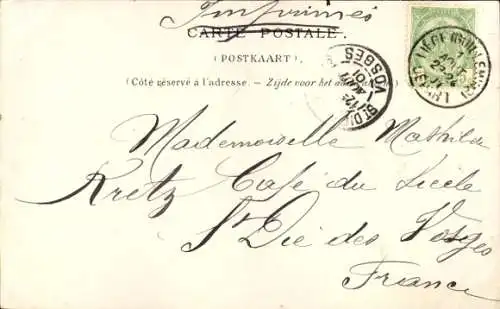 Imprimés
CARTE POSTALE.
(POSTKAART)
(Côté réservé à l'adresse. – Zijde voor het
ST DIÉ
VOSGES
LIÈGE
Mademoiselle Mathilde
Kretz Café du Siècle
St Dié des Vosges
France